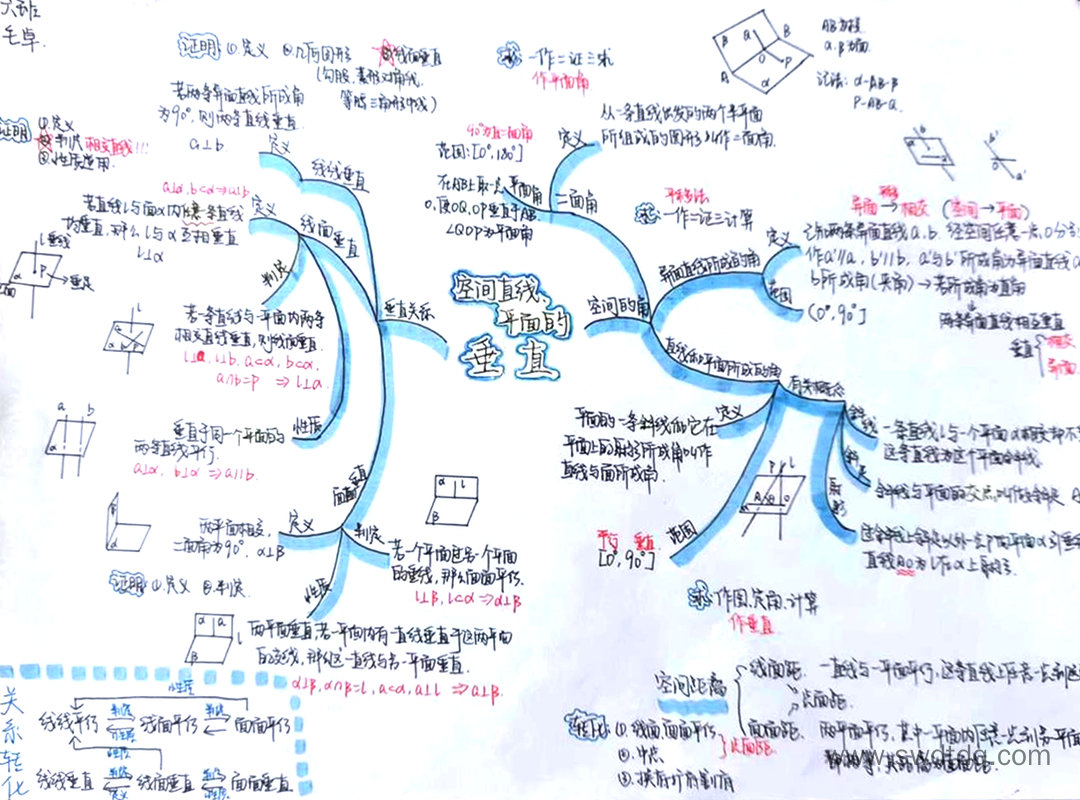 六班
毛卓.
证明 ①.定义 ②.几何图形 ③线面垂直
(勾股,菱形对角线,
等腰三角形中线)
若两条异面直线所成角
为90°,则两条直线垂直.
a⊥b.
定义
线线垂直
证明 ①定义
②判定 相交直线!!!
③性质运用.
a⊥α,b⊂α⇒a⊥b
若直线l与面α内任意一条直线
均垂直,那么l与α互相垂直
l⊥α
定义
线面垂直
判定
l 垂线
P
垂足
α
若一条直线与一平面内两条
相交直线垂直,则线面垂直.
l⊥a, l⊥b, a⊂α, b⊂α,
a∩b=P ⇒ l⊥α.
垂直关系
a b
垂直于同一个平面的
两条直线平行.
a⊥α, b⊥α ⇒ a∥b.
性质
面面垂直
定义
两平面相交,
二面角为90°, α⊥β
证明 ①.定义 ②.判定
α l
β
判定
若一个平面过另一个平面
的垂线,那么面面
l⊥β, l⊂α ⇒ α⊥β
性质
α a
β l
两平面垂直,若一平面内有一直线垂直于这两平面
的交线,那么这一直线与另一平面垂直.
α⊥β, α∩β=l, a⊂α, a⊥l ⇒ a⊥β.
关系转化
性质
线线平行 判定 性质 线面平行 判定 面面平行
性质
线线垂直 判定 定义 线面垂直 判定 性质 面面垂直
空间直线、
平面的
垂直
求 一作二证三求
作平面角
β B
a
O P
A α
AB为棱
α.β为面.
记法: α-AB-β
P-AB-Q.
从一条直线出发的两个半平面
所组成的图形叫作二面角.
定义
90°为直二面角
范围:[0°,180°]
在AB上取一点
O,使OQ,OP垂直于AB.
∠QOP为平面角
平面角
二面角
空间的角
平移法
求 一作二证三计算
异面 → 相交 (空间→平面)
异面直线所成的角
定义
已知两条异面直线a.b. 经空间任意一点O分别
作a'∥a, b'∥b. a'与b'所成角为异面直线a
b所成角(夹角) → 若所成角为直角
两条异面直线相互垂直
垂直 相交
异面
范围
(0°,90°]
直线和平面所成的角
有关概念
定义
平面的一条斜线和它在
平面上的射影所成角叫作
直线与面所成角.
斜线
一条直线l与一个平面α相交却不
这条直线为这个平面斜线.
斜足
斜线与平面的交点叫作斜足 A
射影
直线AO为l在α上射影.
P l
A O
α
范围
平行 垂直
[0°, 90°]
求 作图、定角、计算
作垂直
空间距离
线面距. 一直线与一平面平行,这条直线上任意一点到这
点面距.
面面距. 两平面平行,其中一平面内任意一点到另一平面
转化 ①.线面,面面平行
②.中点 点面距.
www.swdtdq.com